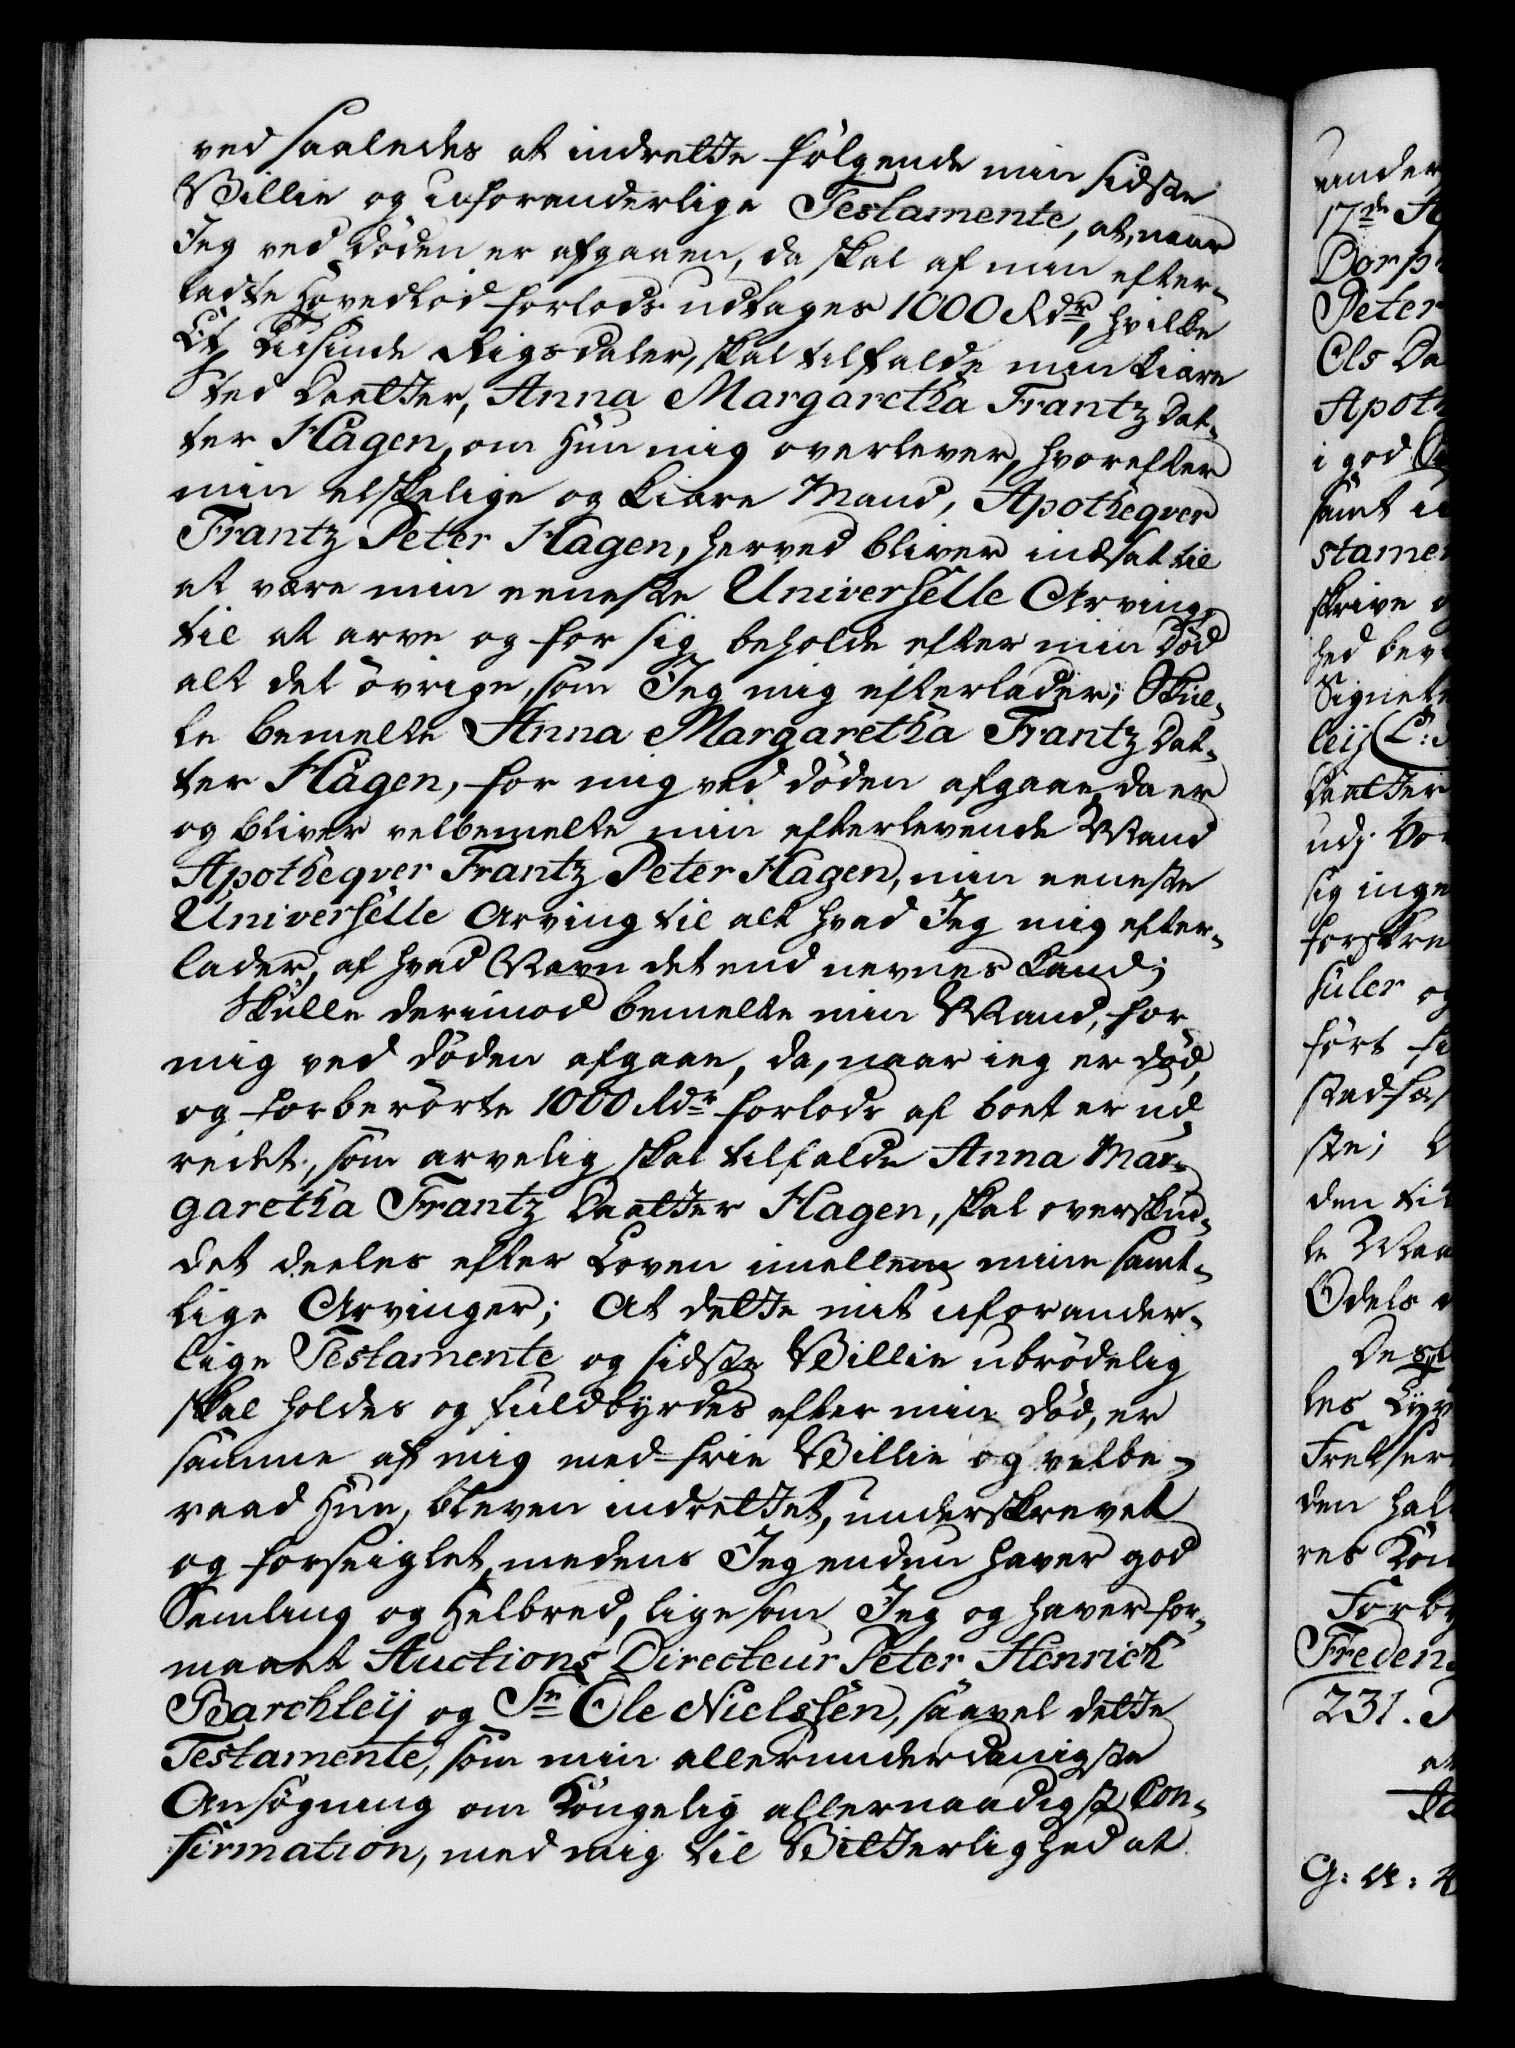 ved saaledes at indrette følgende min sidste
Villie og uforanderlige Testamente, at, naar
Jeg ved Døden er afgaaen, da skal af min efter-
ladte Hovedlod forlods udtages 1000 Rdr, hvilke
Et Tusinde Rigsdaler, skal tilfalde min kiære
Sted Daatter, Anna Margaretha Frantz Dat-
ter Hagen, om Hun mig overlever, hvorefter
min elskelige og kiære Mand, Apotheqver
Frantz Peter Hagen, herved bliver indsat til
at være min eeneste Universelle Arving,
til at arve og for sig beholde efter min Død
alt det øvrige, som Jeg mig efterlader; Skul-
le bemelte Anna Margaretha Frantz Dat-
ter Hagen, for mig ved døden afgaae, da er
og bliver velbemelte min efterlevende Mand
Apotheqver Frantz Peter Hagen, min eeneste
Universelle Arving til alt hvad Jeg mig efter-
lader, af hvad Navn det end nevnes kand;
Skulle derimod bemelte min Mand, for
mig ved døden afgaae, da, naar ieg er død,
og forberørte 1000 Rdr forlods af boet er ud-
redet, som arvelig skal tilfalde Anna Mar-
garetha Frantz Daatter Hagen, skal overskud-
det deeles efter Loven imellem mine samt-
lige Arvinger; At dette mit uforander-
lige Testamente og sidste Villie ubrødelig
skal holdes og fuldbyrdes efter min Død, er
samme af mig med frie Villie og velbe-
raad Hue, bleven indrettet, underskrevet
og forseiglet, medens Jeg endnu haver god
Samling og Helbred, ligesom Jeg og haver for-
maaet Auctions Directeur Peter Henrich
Barchleij og Sr Ole Nielssen, saavel dette
Testamente, som min allerunderdanigste
Ansøgning om Kongelig allernaadigst Con-
firmation, med mig til Vitterlighed at
17de
Peter
Apoth
i god
skrive
Signet
Daatter
sig inge
Odels
231.